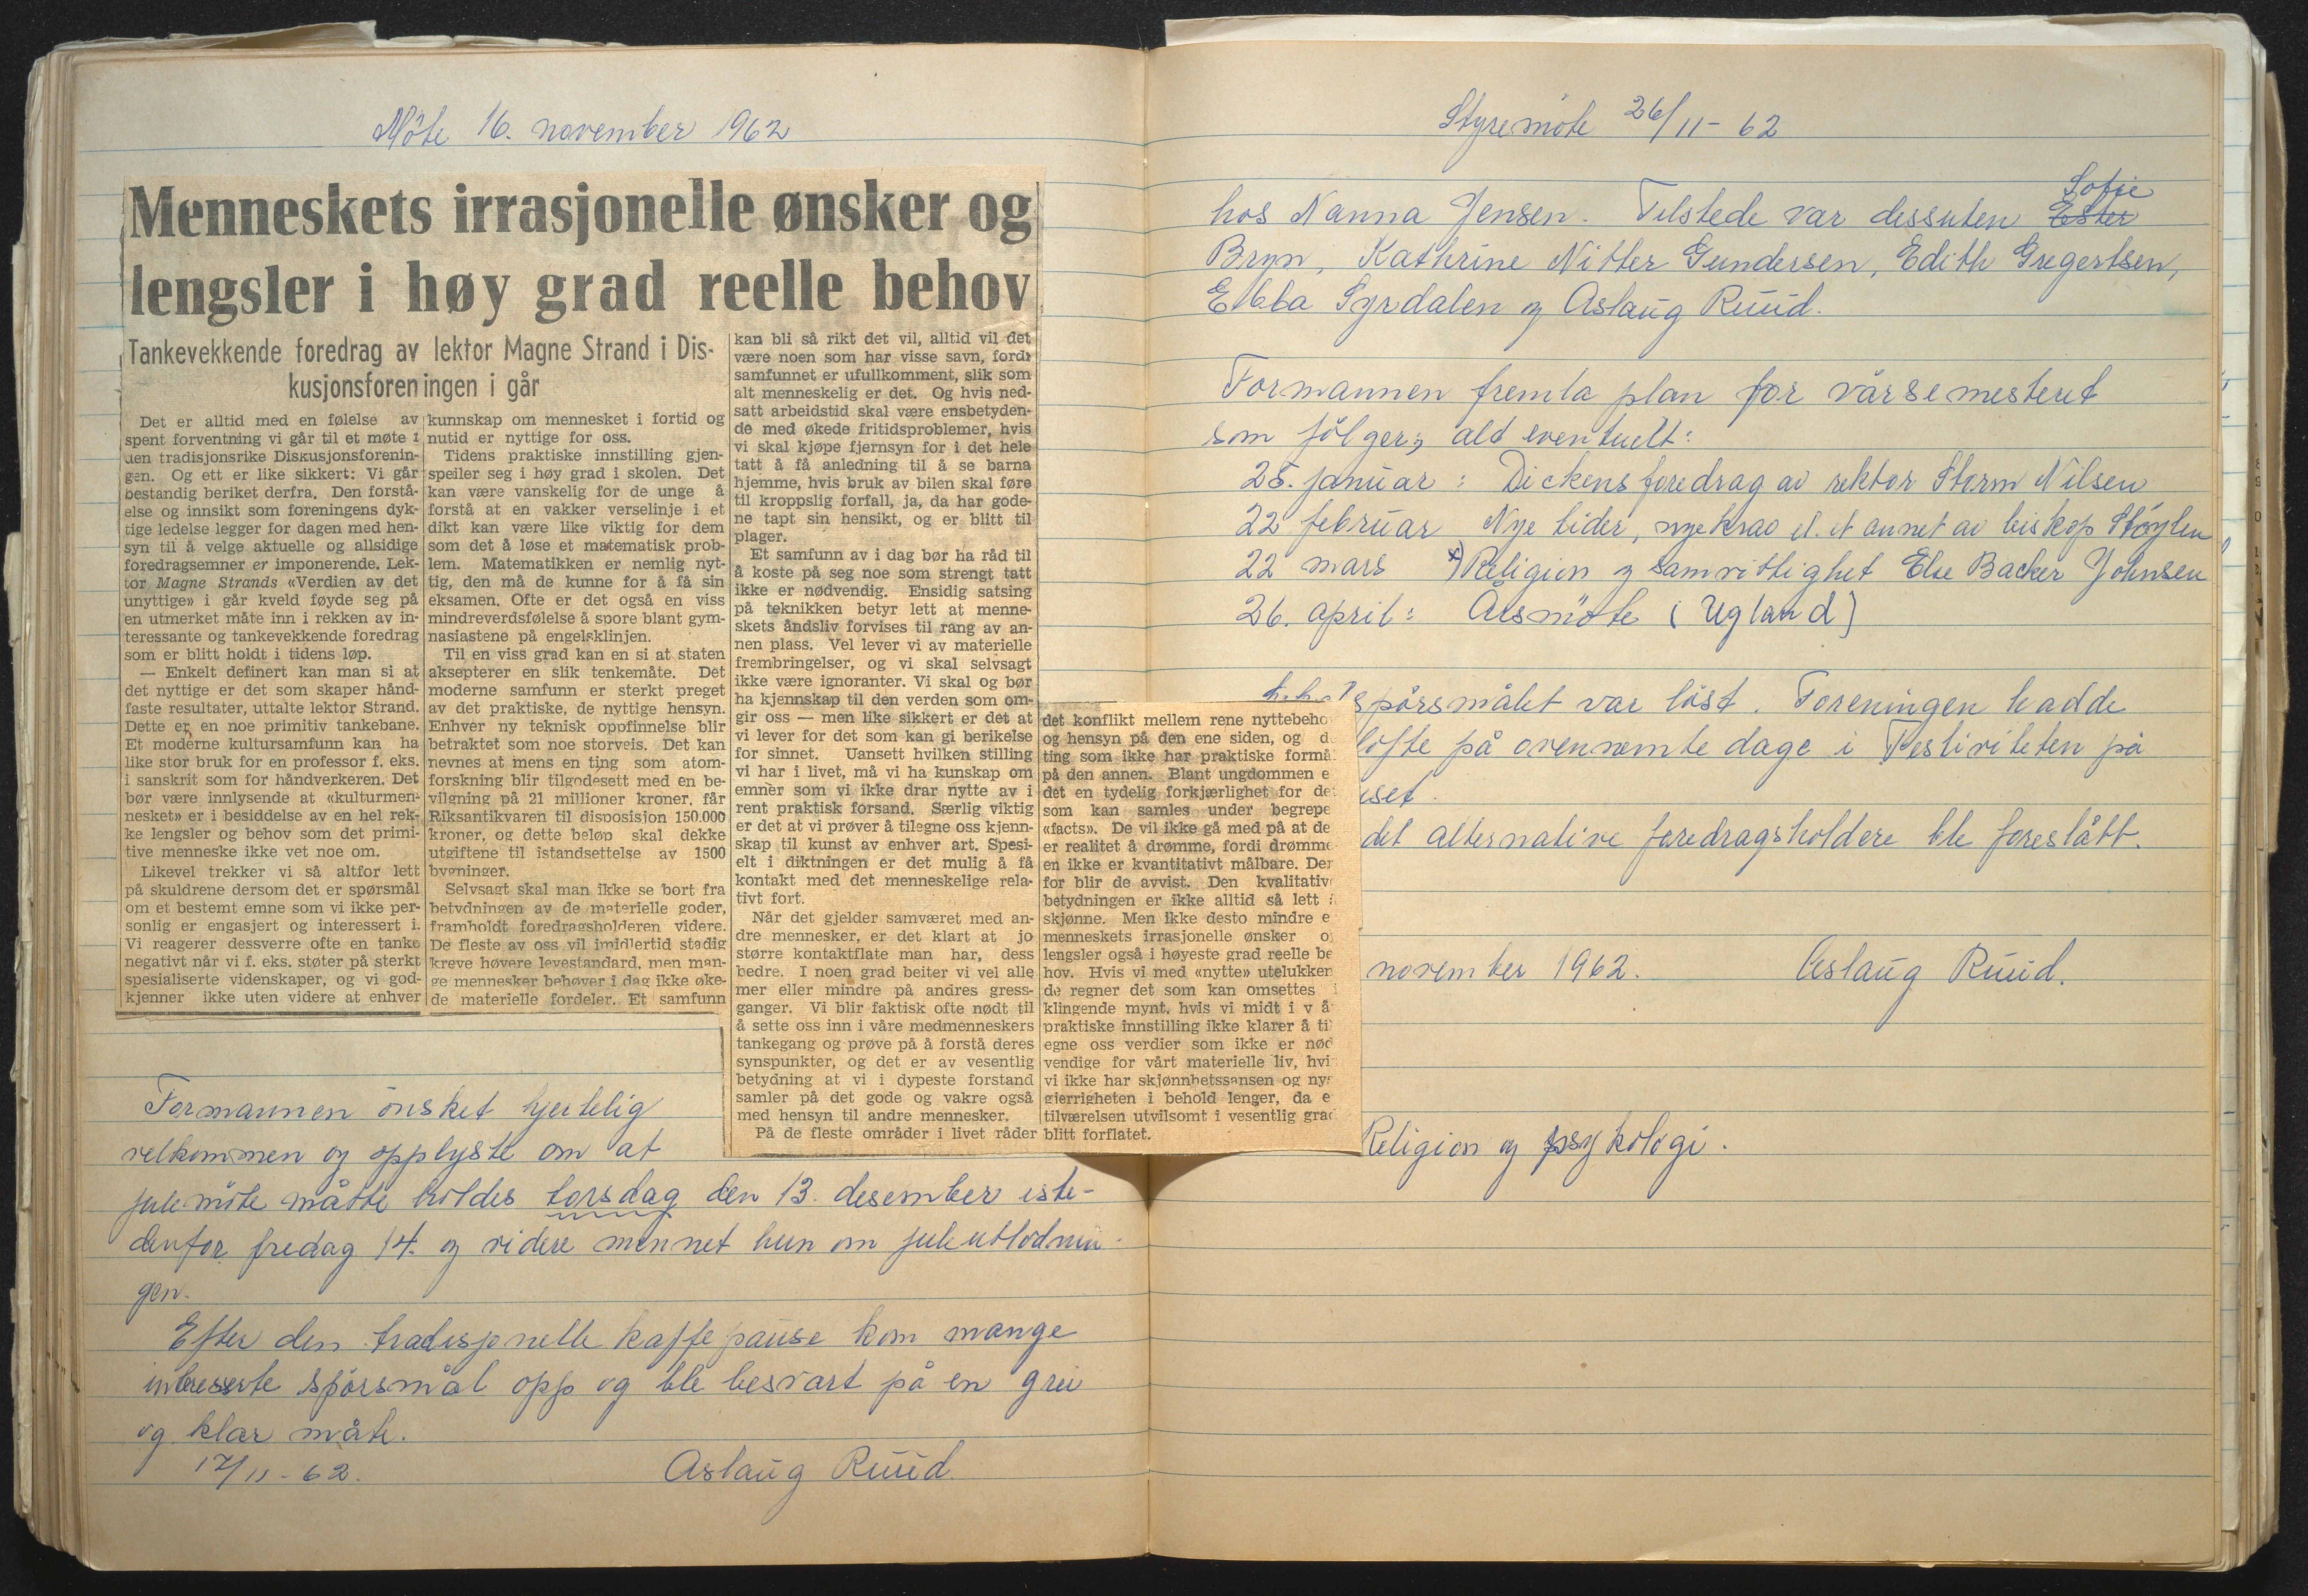 Möte 16. november 1962
Menneskets irrasjonelle ønsker og
lengsler i høy grad reelle behov
Tankevekkende foredrag av lektor Magne Strand i Dis-
kusjonsforeningen i går
Det er alltid med en følelse av
spent forventning vi går til et møte i
den tradisjonsrike Diskusjonsforenin-
gen. Og ett er like sikkert: Vi går
bestandig beriket derfra. Den forstå-
else og innsikt som foreningens dyk-
tige ledelse legger for dagen med hen-
syn til å velge aktuelle og allsidige
foredragsemner er imponerende. Lek-
tor Magne Strands «Verdien av det
unyttige» i går kveld føyde seg på
en utmerket måte inn i rekken av in-
teressante og tankevekkende foredrag
som er blitt holdt i tidens løp.
— Enkelt definert kan man si at
det nyttige er det som skaper hånd-
faste resultater, uttalte lektor Strand.
Dette er en noe primitiv tankebane.
Et moderne kultursamfunn kan ha
like stor bruk for en professor f. eks.
i sanskrit som for håndverkeren. Det
bør være innlysende at «kulturmen-
nesket» er i besiddelse av en hel rek-
ke lengsler og behov som det primi-
tive menneske ikke vet noe om.
Likevel trekker vi så altfor lett
på skuldrene dersom det er spørsmål
om et bestemt emne som vi ikke per-
sonlig er engasjert og interessert i.
Vi reagerer dessverre ofte en tanke
negativt når vi f. eks. støter på sterkt
spesialiserte videnskaper, og vi god-
kjenner ikke uten videre at enhver
kunnskap om mennesket i fortid og
nutid er nyttige for oss.
Tidens praktiske innstilling gjen-
speiler seg i høy grad i skolen. Det
kan være vanskelig for de unge å
forstå at en vakker verselinje i et
dikt kan være like viktig for dem
som det å løse et matematisk prob-
lem. Matematikken er nemlig nyt-
tig, den må de kunne for å få sin
eksamen. Ofte er det også en viss
mindreverdsfølelse å spore blant gym-
nasiastene på engelsklinjen.
Til en viss grad kan en si at staten
aksepterer en slik tenkemåte. Det
moderne samfunn er sterkt preget
av det praktiske, de nyttige hensyn.
Enhver ny teknisk oppfinnelse blir
betraktet som noe storveis. Det kan
nevnes at mens en ting som atom-
forskning blir tilgodesett med en be-
vilgning på 21 millioner kroner, får
Riksantikvaren til disposisjon 150.000
kroner, og dette beløp skal dekke
utgiftene til istandsettelse av 1500
bygninger.
Selvsagt skal man ikke se bort fra
betydningen av de materielle goder,
framholdt foredragsholderen videre.
De fleste av oss vil imidlertid stadig
kreve høyere levestandard, men man-
ge mennesker behøver i dag ikke øke-
de materielle fordeler. Et samfunn
kan bli så rikt det vil, alltid vil det
være noen som har visse savn, fordi
samfunnet er ufullkomment, slik som
alt menneskelig er det. Og hvis ned-
satt arbeidstid skal være ensbetyden-
de med økede fritidsproblemer, hvis
vi skal kjøpe fjernsyn for i det hele
tatt å få anledning til å se barna
hjemme, hvis bruk av bilen skal føre
til kroppslig forfall, ja, da har gode-
ne tapt sin hensikt, og er blitt til
plager.
Et samfunn av i dag bør ha råd til
å koste på seg noe som strengt tatt
ikke er nødvendig. Ensidig satsing
på teknikken betyr lett at menne-
skets åndsliv forvises til rang av an-
nen plass. Vel lever vi av materielle
frembringelser, og vi skal selvsagt
ikke være ignoranter. Vi skal og bør
ha kjennskap til den verden som om-
gir oss — men like sikkert er det at
vi lever for det som kan gi berikelse
for sinnet. Uansett hvilken stilling
vi har i livet, må vi ha kunskap om
emner som vi ikke drar nytte av i
rent praktisk forsand. Særlig viktig
er det at vi prøver å tilegne oss kjenn-
skap til kunst av enhver art. Spesi-
elt i diktningen er det mulig å få
kontakt med det menneskelige rela-
tivt fort.
Når det gjelder samværet med an-
dre mennesker, er det klart at jo
større kontaktflate man har, dess
bedre. I noen grad beiter vi vel alle
mer eller mindre på andres gress-
ganger. Vi blir faktisk ofte nødt til
å sette oss inn i våre medmenneskers
tankegang og prøve på å forstå deres
synspunkter, og det er av vesentlig
betydning at vi i dypeste forstand
samler på det gode og vakre også
med hensyn til andre mennesker.
På de fleste områder i livet råder
det konflikt mellem rene nyttebeho
og hensyn på den ene siden, og d
ting som ikke har praktiske formå
på den annen. Blant ungdommen e
det en tydelig forkjærlighet for de
som kan samles under begrepe
«facts». De vil ikke gå med på at de
er realitet å drømme, fordi drømme
en ikke er kvantitativt målbare. Der
for blir de avvist. Den kvalitativ
betydningen er ikke alltid så lett
skjønne. Men ikke desto mindre e
menneskets irrasjonelle ønsker o
lengsler også i høyeste grad reelle be
hov. Hvis vi med «nytte» utelukken
de regner det som kan omsettes i
klingende mynt, hvis vi midt i v å
praktiske innstilling ikke klarer å ti
egne oss verdier som ikke er nød
vendige for vårt materielle liv, hvi
vi ikke har skjønnhetssansen og nys
gjerrigheten i behold lenger, da e
tilværelsen utvilsomt i vesentlig grad
blitt forflatet.
Formannen önsket hjertelig
velkommen og opplyste om at
julemöte måtte holdes torsdag den 13. desember iste-
denfor fredag 14. og videre minnet hun om juleutlodnin-
gen.
Efter den tradisjonelle kaffepause kom mange
interesserte spörsmål opp og ble besvart på en grei
og klar måte.
17/11-62. Aslaug Ruud.
Styremöte 26/11-62
Sofie
hos Nanna Jensen. Tilstede var dessuten Ester
Bryn, Kathrine Nitter Gundersen, Edith Gregertsen,
Ebba Syrdalen og Aslaug Ruud.
Formannen fremla plan for vårsemesteret
som fölger, alt eventuelt:
25. januar: Dickensforedrag av rektor Storm Nilsen
22 februar Nye tider, nye krav el. et annet av biskop Stöylen
22 mars x) Religion og samvittighet Else Backer Johnsen
26. april: Årsmöte (Ugland)
spörsmålet var löst. Foreningen hadde
löfte på ovennemte dage i Festiviteten på
set.
det alternative foredragsholdere ble foreslått.
november 1962. Aslaug Ruud.
Religion og psykologi.